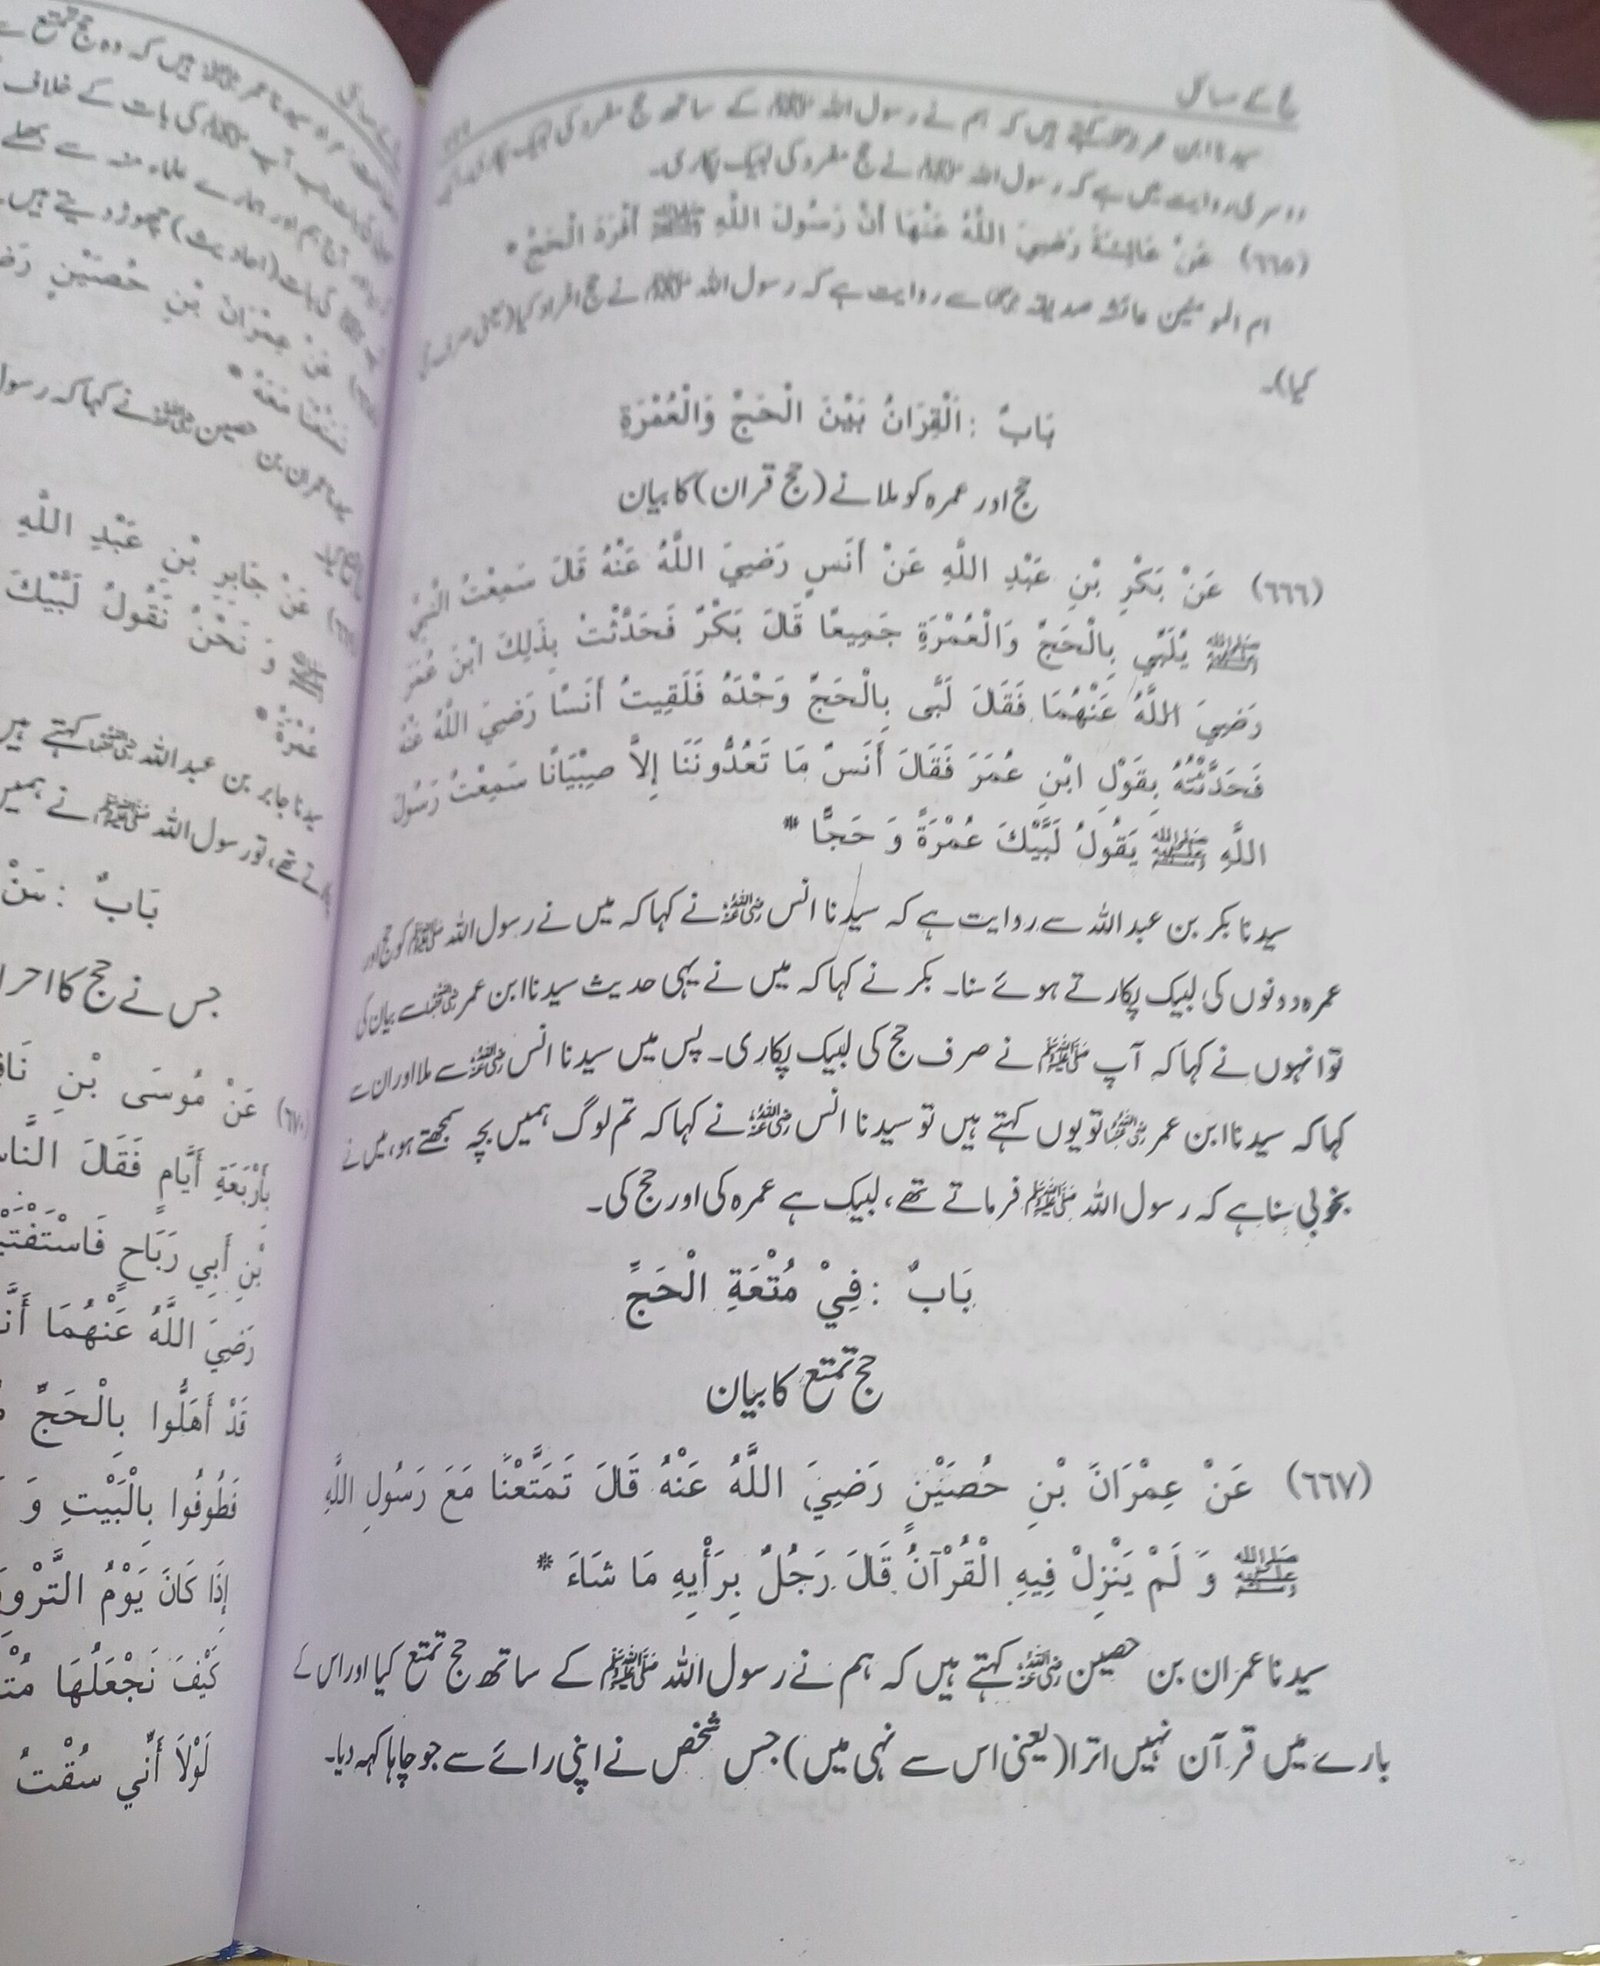 حج کے مسائل
سیدنا ابن عمر کہتے ہیں کہ ہم نے رسول اللہ ﷺ کے ساتھ حج مفرد کی لبیک پکاری اور ایک
دوسری روایت میں ہے کہ رسول اللہ ﷺ نے حج مفرد کی لبیک پکاری۔
(٦٦٥) عَنْ عَائِشَةَ رَضِيَ اللَّهُ عَنْهَا أَنَّ رَسُولَ اللَّهِ ﷺ أَفْرَدَ الْحَجَّ *
ام المومنین عائشہ صدیقہ سے روایت ہے کہ رسول اللہ ﷺ نے حج افراد کیا (یعنی صرف حج
کیا)۔
بَابٌ : اَلْقِرَانُ بَيْنَ الْحَجِّ وَالْعُمْرَةِ
حج اور عمرہ کو ملانے (حج قران) کا بیان
(٦٦٦) عَنْ بَكْرِ بْنِ عَبْدِ اللَّهِ عَنْ أَنَسٍ رَضِيَ اللَّهُ عَنْهُ قَالَ سَمِعْتُ النَّبِيَّ
ﷺ يُلَبِّي بِالْحَجِّ وَالْعُمْرَةِ جَمِيعًا قَالَ بَكْرٌ فَحَدَّثْتُ بِذَلِكَ ابْنَ عُمَرَ
رَضِيَ اللَّهُ عَنْهُمَا فَقَالَ لَبَّى بِالْحَجِّ وَحْدَهُ فَلَقِيتُ أَنَسًا رَضِيَ اللَّهُ عَنْهُ
فَحَدَّثْتُهُ بِقَوْلِ ابْنِ عُمَرَ فَقَالَ أَنَسٌ مَا تَعُدُّونَنَا إِلاَّ صِبْيَانًا سَمِعْتُ رَسُولَ
اللَّهِ ﷺ يَقُولُ لَبَّيْكَ عُمْرَةً وَ حَجًّا *
سیدنا بکر بن عبداللہ سے روایت ہے کہ سیدنا انس رضی اللہ عنہ نے کہا کہ میں نے رسول اللہ ﷺ کو حج اور
عمرہ دونوں کی لبیک پکارتے ہوئے سنا۔ بکر نے کہا کہ میں نے یہی حدیث سیدنا ابن عمر رضی اللہ عنہما سے بیان کی
تو انہوں نے کہا کہ آپ ﷺ نے صرف حج کی لبیک پکاری۔ پس میں سیدنا انس رضی اللہ عنہ سے ملا اور ان سے
کہا کہ سیدنا ابن عمر رضی اللہ عنہما تو یوں کہتے ہیں تو سیدنا انس رضی اللہ عنہ نے کہا کہ تم لوگ ہمیں بچہ سمجھتے ہو، میں نے
بخوبی سنا ہے کہ رسول اللہ ﷺ فرماتے تھے، لبیک ہے عمرہ کی اور حج کی۔
بَابٌ : فِيْ مُتْعَةِ الْحَجِّ
حج تمتع کا بیان
(٦٦٧) عَنْ عِمْرَانَ بْنِ حُصَيْنٍ رَضِيَ اللَّهُ عَنْهُ قَالَ تَمَتَّعْنَا مَعَ رَسُولِ اللَّهِ
ﷺ وَ لَمْ يَنْزِلْ فِيهِ الْقُرْآنُ قَالَ رَجُلٌ بِرَأْيِهِ مَا شَاءَ *
سیدنا عمران بن حصین رضی اللہ عنہ کہتے ہیں کہ ہم نے رسول اللہ ﷺ کے ساتھ حج تمتع کیا اور اس کے
بارے میں قرآن نہیں اترا (یعنی اس سے نہی میں) جس شخص نے اپنی رائے سے جو چاہا کہہ دیا۔
ہیں کہ وہ حج تمتع
آپ ﷺ کی بات کے خلاف
ہم اور ہمارے علماء
کی بات (احادیث) چھوڑ دیتے ہیں۔
عَنْ عِمْرَانَ بْنِ حُصَيْنٍ
تَمَتَّعْنَا مَعَهُ *
سیدنا عمران بن حصین رضی اللہ عنہ نے کہا کہ رسول
عَنْ جَابِرِ بْنِ عَبْدِ اللَّهِ
ﷺ وَ نَحْنُ نَقُولُ لَبَّيْكَ
عُمْرَةً *
سیدنا جابر بن عبداللہ رضی اللہ عنہ کہتے ہیں
تھے، تو رسول اللہ ﷺ نے ہمیں
بَابٌ : مَنْ
جس نے حج کا احرا
(٦٧٠) عَنْ مُوسَى بْنِ نَافِ
بِأَرْبَعَةِ أَيَّامٍ فَقَالَ النَّاسُ
بْنِ أَبِي رَبَاحٍ فَاسْتَفْتَيْ
رَضِيَ اللَّهُ عَنْهُمَا أَنَّ
قَدْ أَهَلُّوا بِالْحَجِّ
فَطُوفُوا بِالْبَيْتِ وَ
إِذَا كَانَ يَوْمُ التَّرْوِ
كَيْفَ نَجْعَلُهَا مُتْ
لَوْلاَ أَنِّي سُقْتُ